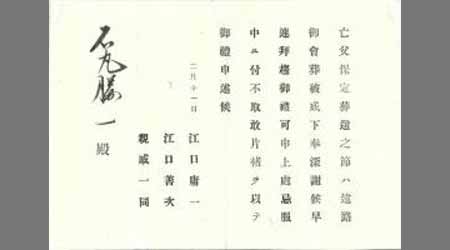 亡父保定葬送之節ハ遠路
御會葬被成下奉深謝候早
速拜趨御禮可申上處忌服
中ニ付不取敢片楮ヲ以テ
御禮申述候
二月十一日
江口庸一
江口善次
親戚一同
石丸勝一殿